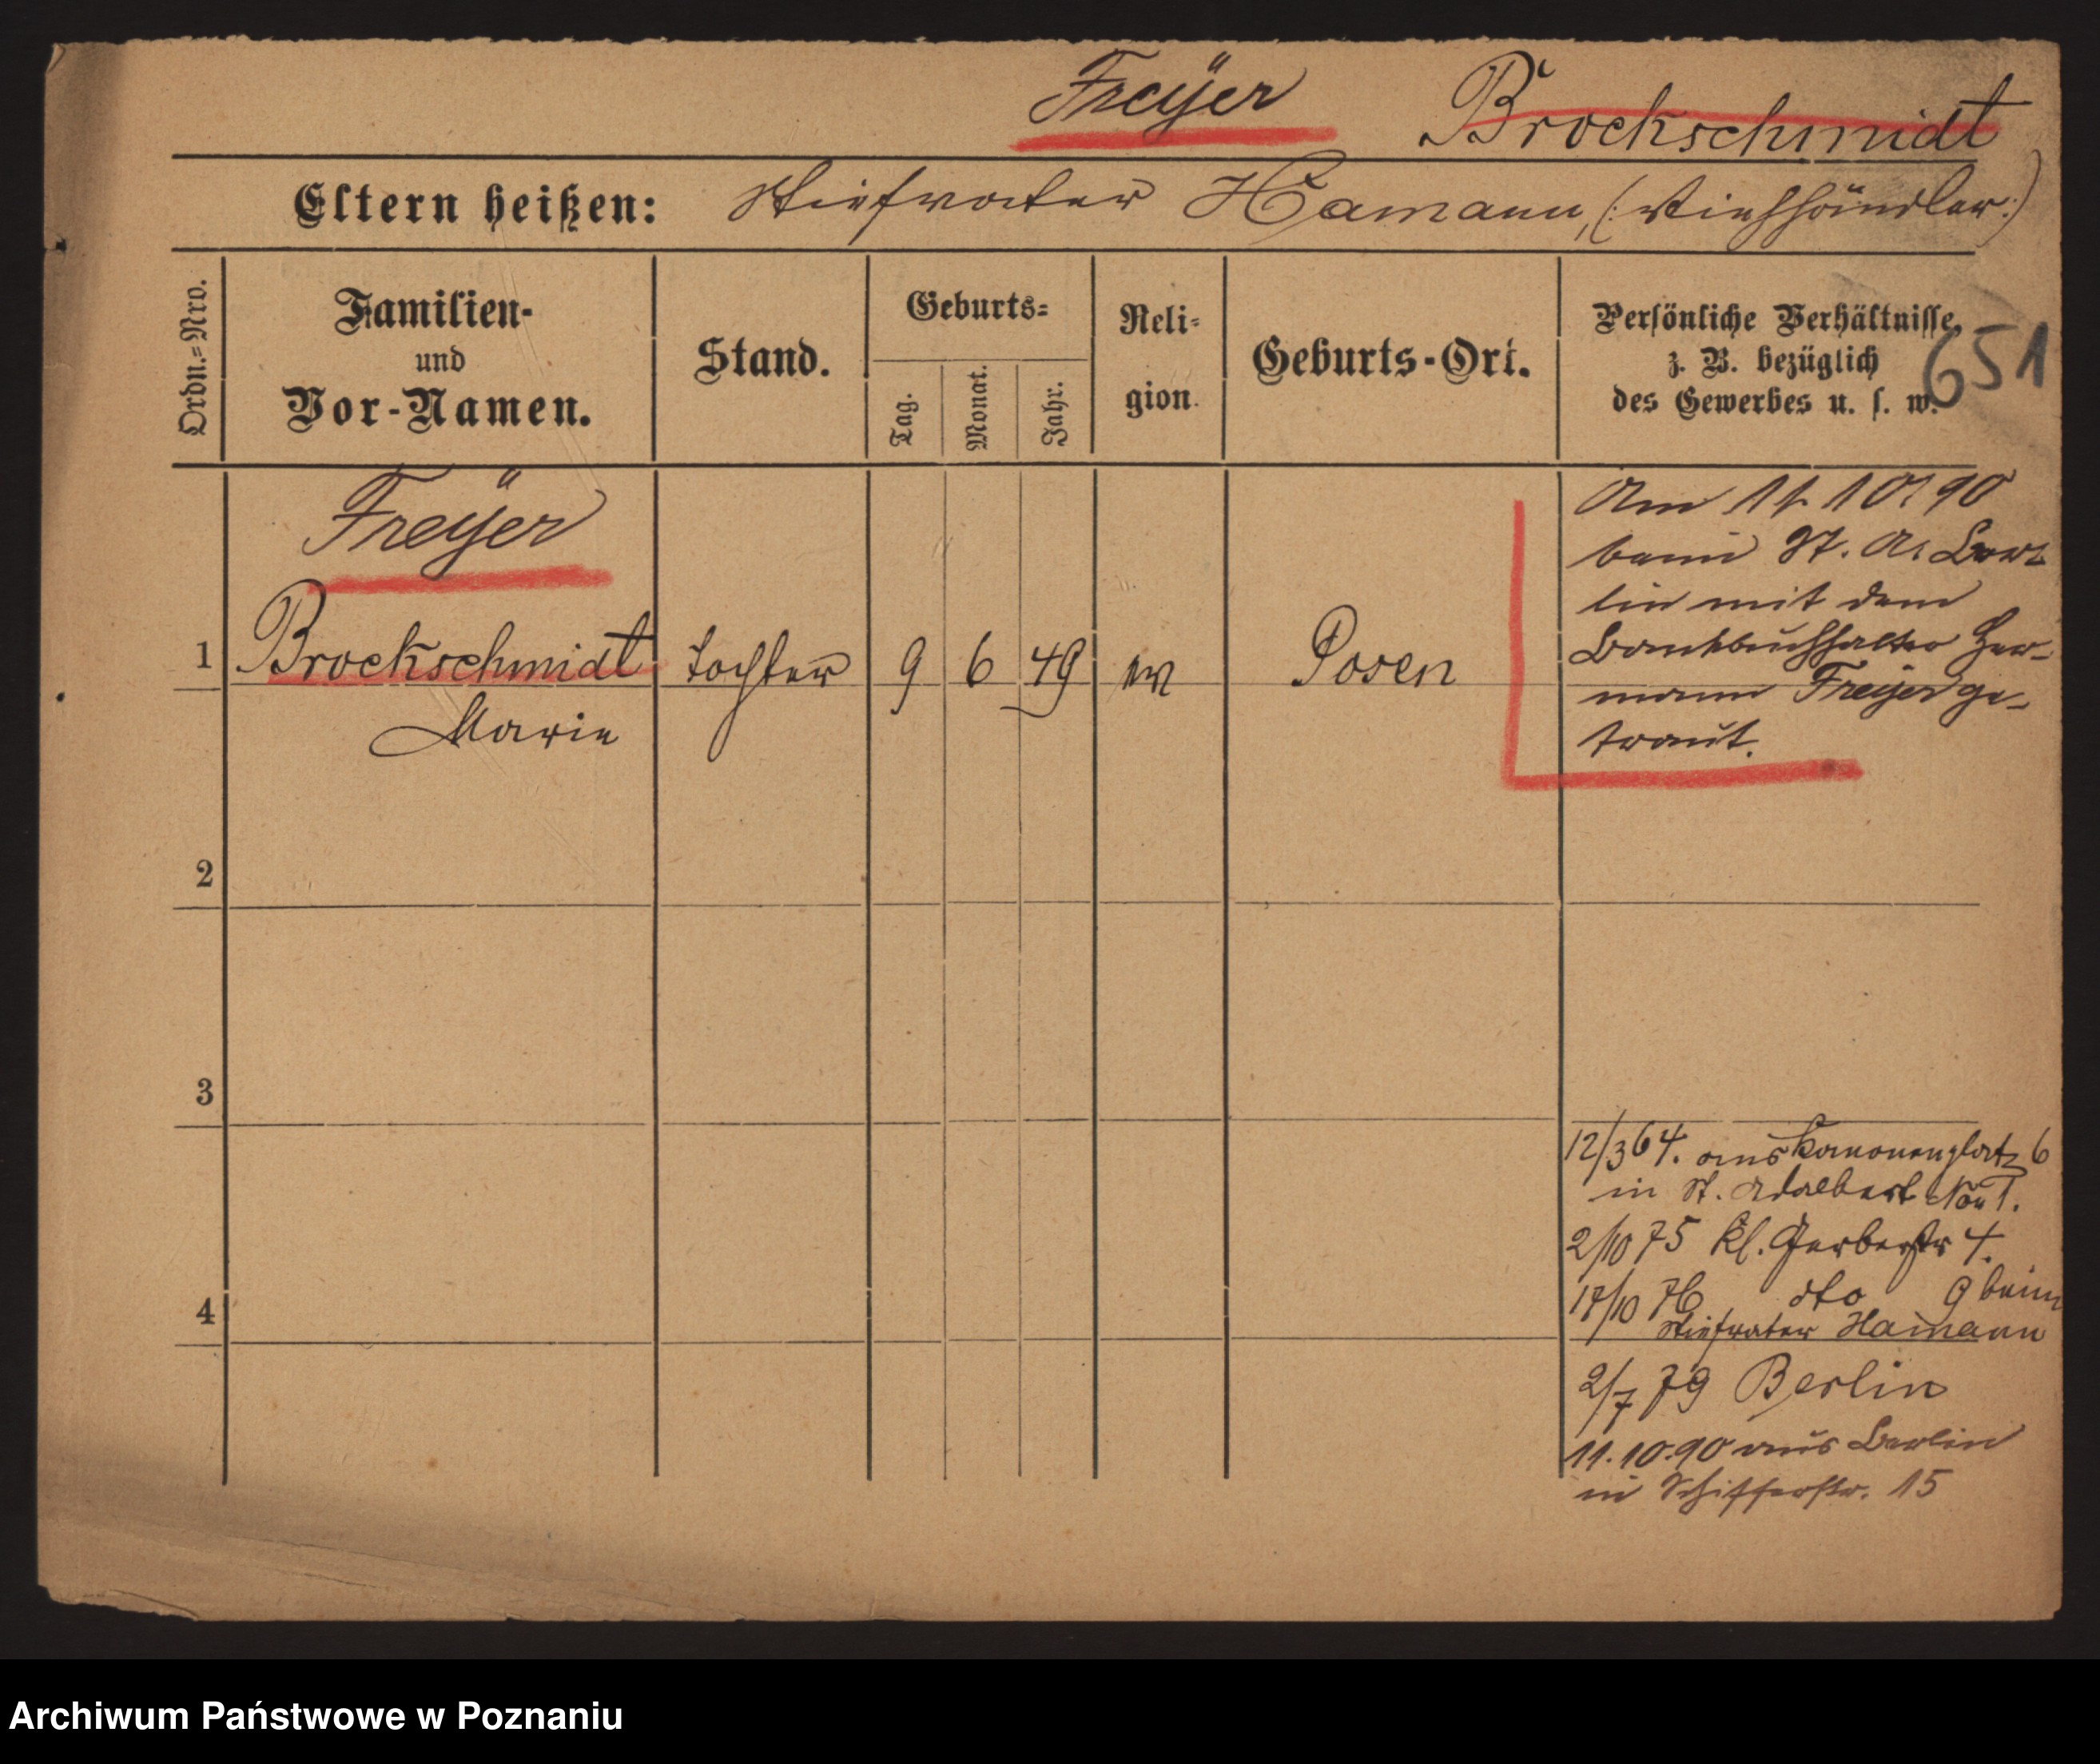 Freÿer Brockschmidt
Eltern heißen: Stiefvater Hamann, (: Viehhändler :)
Ordn.=Nro.
Familien-
und
Vor-Namen.
Stand.
Geburts=
Tag.
Monat.
Jahr.
Reli=
gion.
Geburts-Ort.
Persönliche Verhältnisse,
z. B. bezüglich
des Gewerbes u. s. w.
651
Freÿer
1 Brockschmidt Tochter 9 6 49 ev Posen
Marie
Am 11. 10. 90
beim St. A. Ber=
lin mit dem
Bankbuchhalter Her-
mann Freyer ge-
traut.
2
3
4
12/3 64. aus Kanonenplatz 6
in St. Adalbert No 1.
2/10 75 Kl. Gerberstr 4.
17/10 76 dto 9 beim
Stiefvater Hamann
2/7 79 Berlin
11.10.90 aus Berlin
in Schifferstr. 15
Archiwum Państwowe w Poznaniu